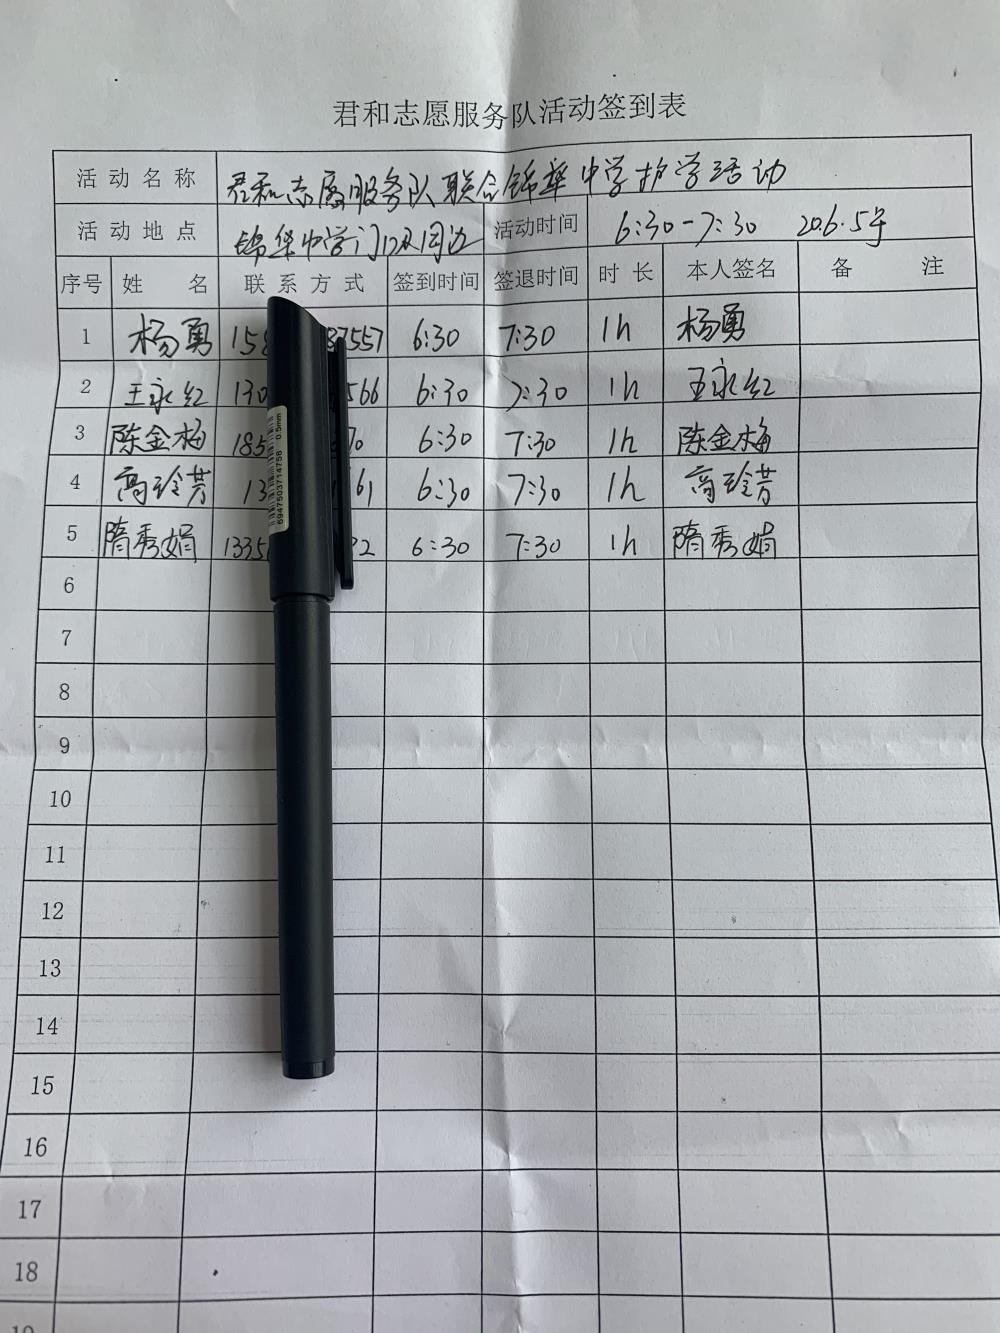 君和志愿服务队活动签到表
活动名称 君和志愿服务队联合锦华中学护学活动
活动地点 锦华中学门口及周边 活动时间 6:30-7:30 20.6.5号
序号 姓名 联系方式 签到时间 签退时间 时长 本人签名 备注
1 杨勇 158 87557 6:30 7:30 1h 杨勇
2 王永红 130 566 6:30 7:30 1h 王永红
3 陈金梅 185 70 6:30 7:30 1h 陈金梅
4 高玲芳 13 61 6:30 7:30 1h 高玲芳
5 隋秀娟 1335 32 6:30 7:30 1h 隋秀娟
6
7
8
9
10
11
12
13
14
15
16
17
18
19
6947503714758 0.5mm